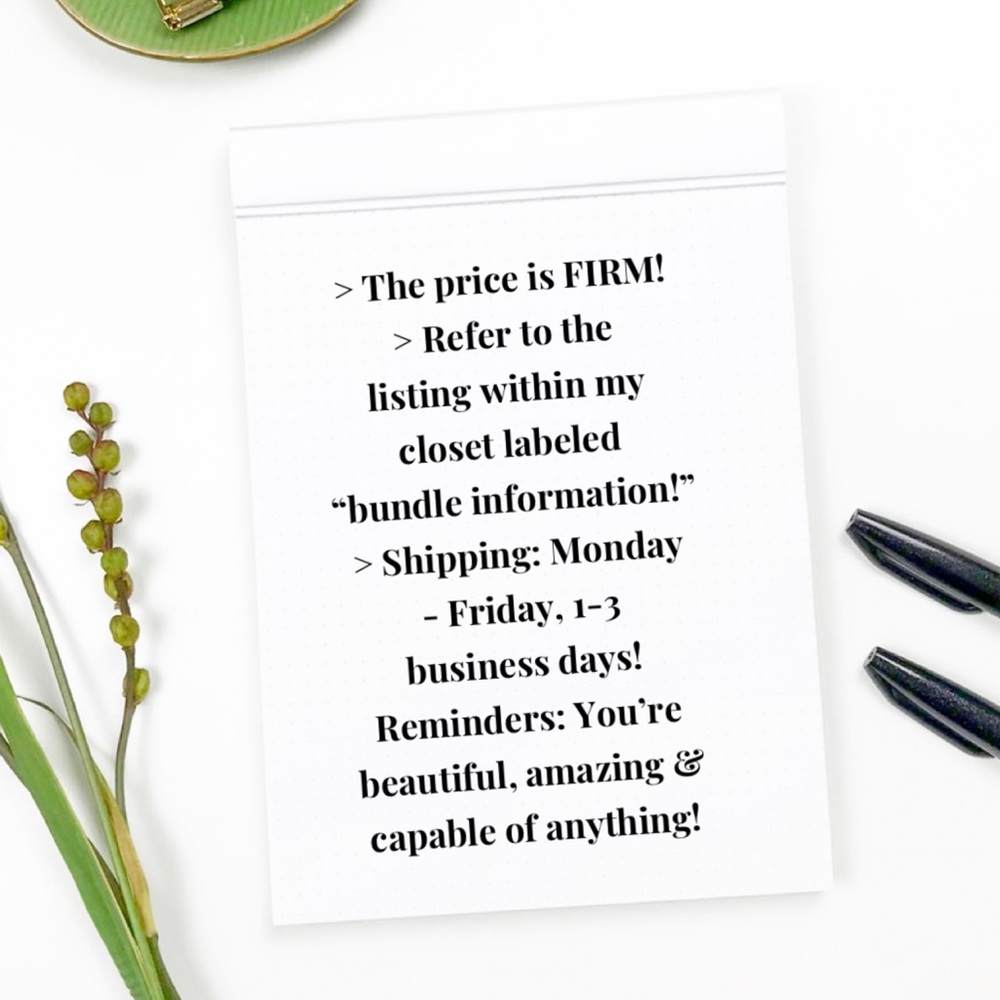 > The price is FIRM!
> Refer to the
listing within my
closet labeled
“bundle information!”
> Shipping: Monday
- Friday, 1-3
business days!
Reminders: You’re
beautiful, amazing &
capable of anything!